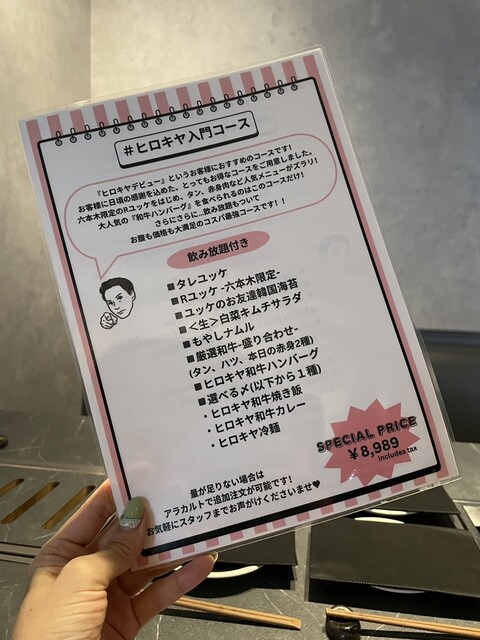 #ヒロキヤ入門コース
『ヒロキヤデビュー』というお客様におすすめのコースです!
お客様に日頃の感謝を込めた、とってもお得なコースをご用意しました。
六本木限定のRユッケをはじめ、タン、赤身肉など人気メニューがズラリ!
大人気の『和牛ハンバーグ』を食べられるのはこのコースだけ!
さらにさらに…飲み放題もついて
お腹も価格も大満足のコスパ最強コースです!!
飲み放題付き
■タレユッケ
■Rユッケ -六本木限定-
■ユッケのお友達韓国海苔
■<生>白菜キムチサラダ
■もやしナムル
■厳選和牛-盛り合わせ-
(タン、ハツ、本日の赤身2種)
■ヒロキヤ和牛ハンバーグ
■選べる〆(以下から1種)
・ヒロキヤ和牛焼き飯
・ヒロキヤ和牛カレー
・ヒロキヤ冷麺
SPECIAL PRICE
¥8,989
includes tax
量が足りない場合は
アラカルトで追加注文が可能です!
お気軽にスタッフまでお声がけくださいませ♥